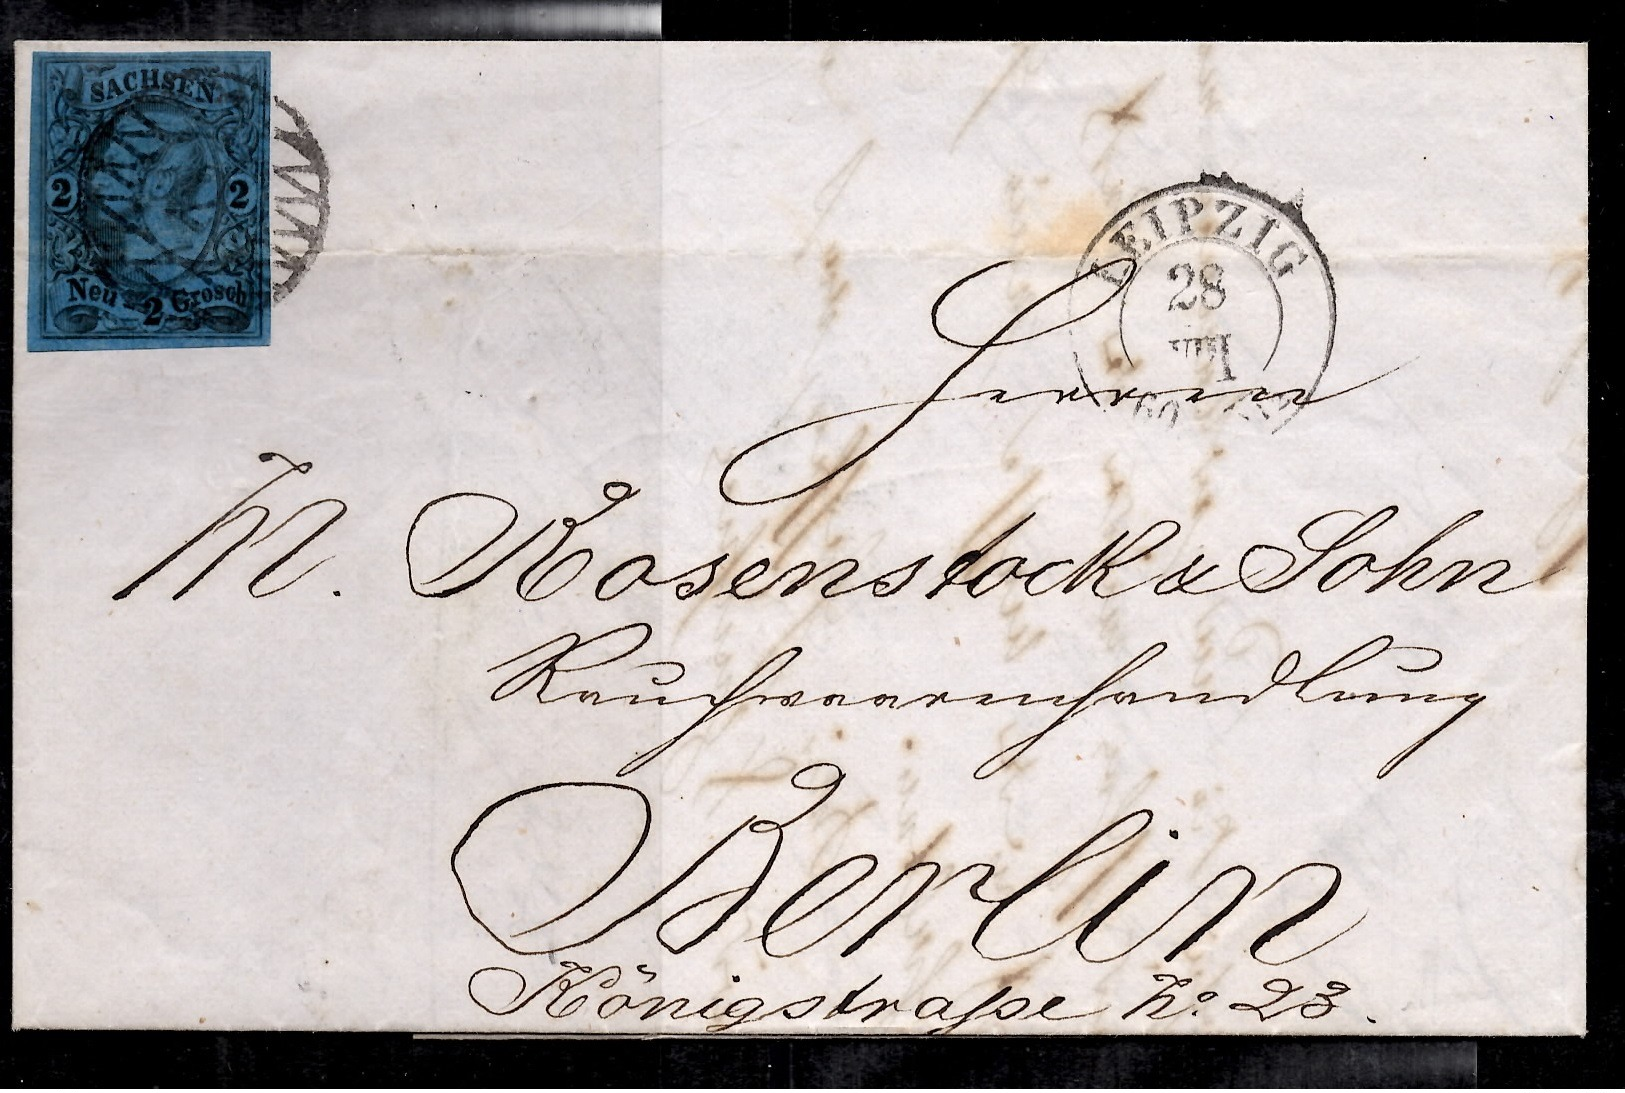 SACHSEN
2 2
Neu 2 Grosch
LEIPZIG
28
VIII
60
Herren
M. Rosenstock & Sohn
Rauchwaarenhandlung
Berlin
Königstraſse No 23.